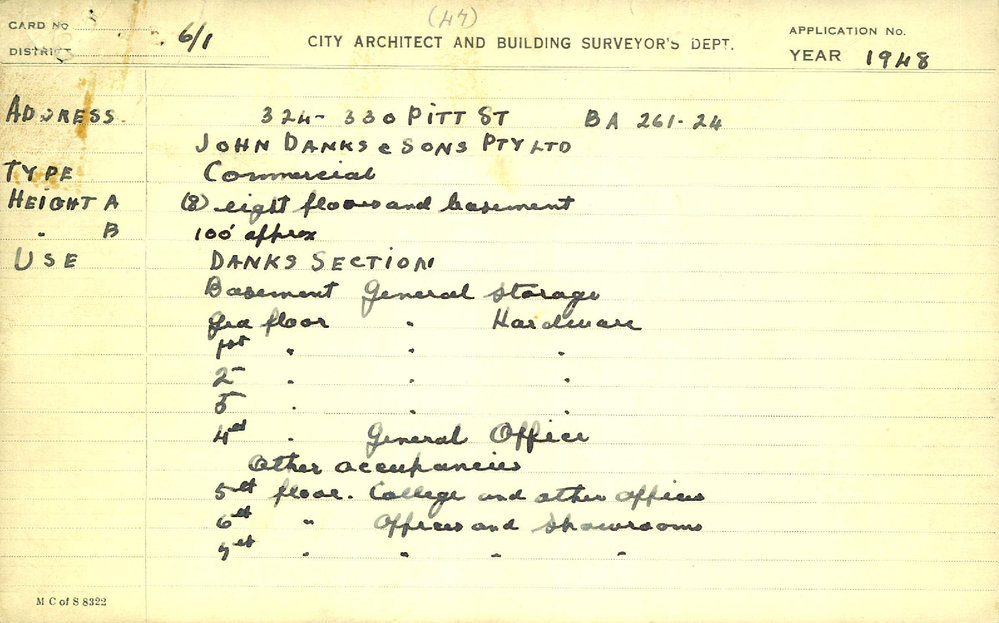 (47)
CARD No 6/1
DISTRICT
CITY ARCHITECT AND BUILDING SURVEYOR'S DEPT.
APPLICATION No.
YEAR 1948
ADDRESS 324-330 PITT ST BA 261-24
JOHN DANKS & SONS PTY LTD
TYPE Commercial
HEIGHT A (8) eight floors and basement
" B 100' approx
USE DANKS SECTION
Basement General Storage
Grd floor " Hardware
1st " " "
2 " " "
" " "
4th " General Office
Other occupancies
5th floor. College and other offices
6th " Offices and Showrooms
7th " " " "
M C of S 8322